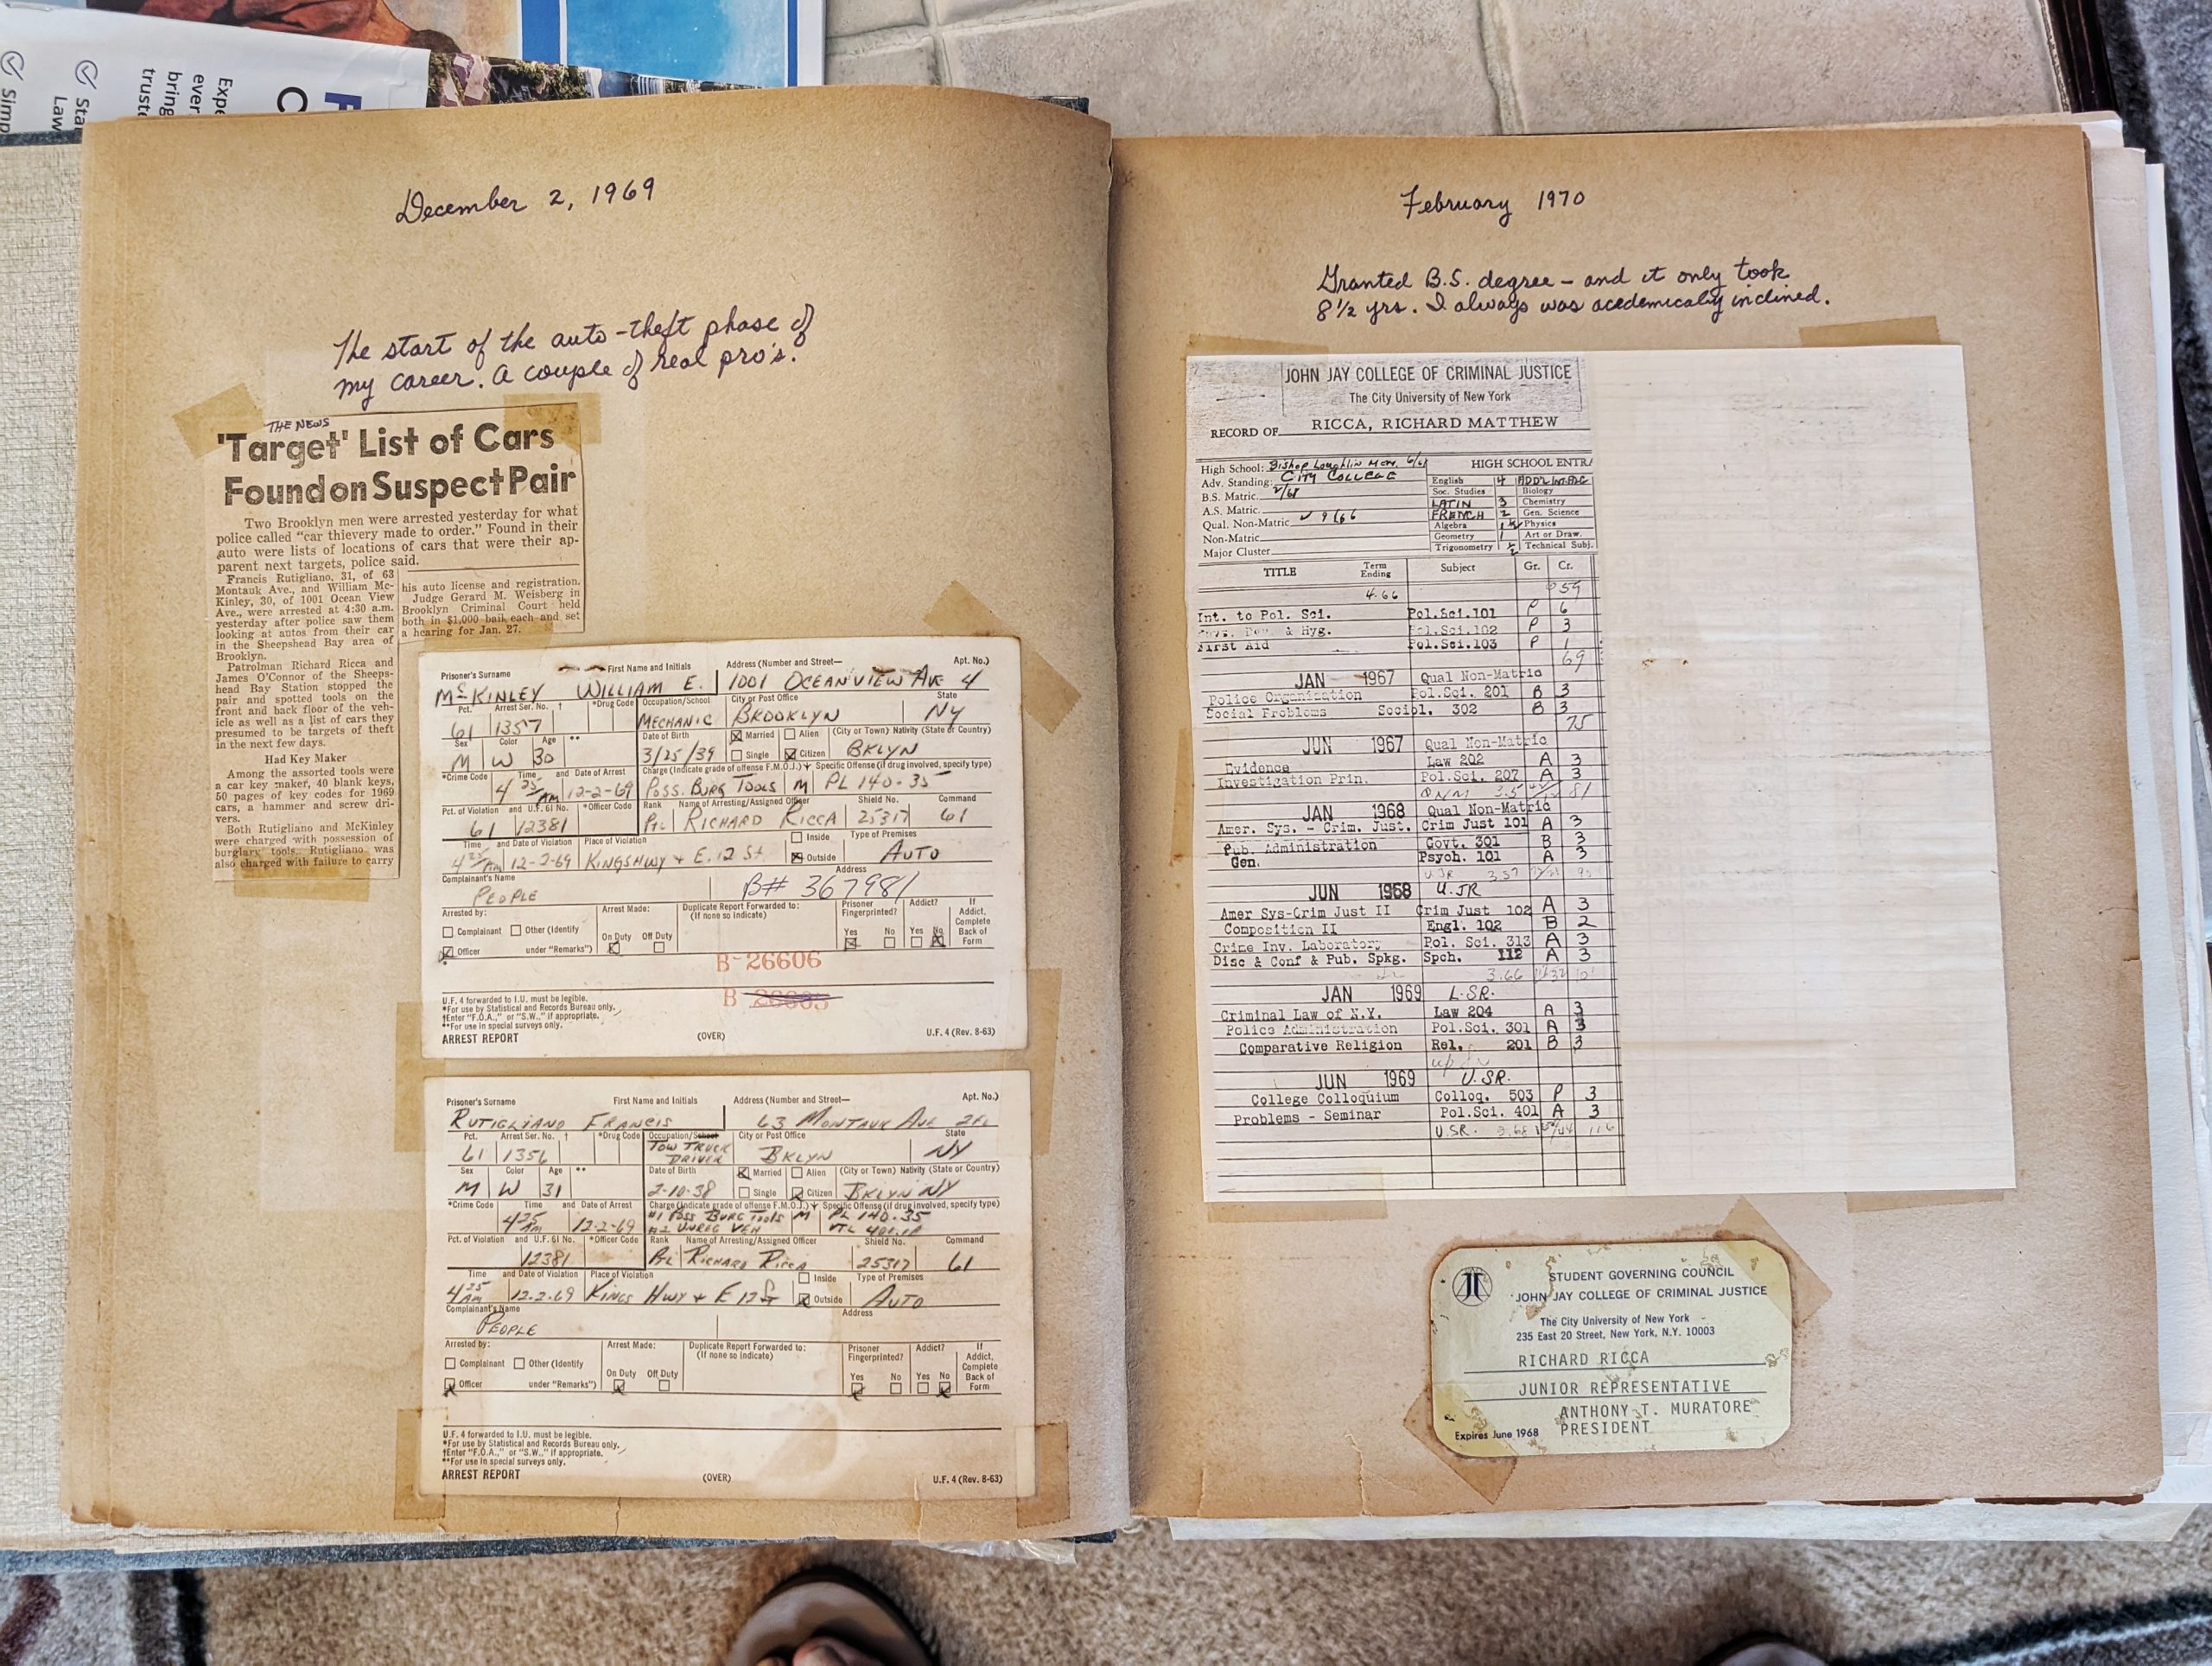 Expe
ever
bring
truste
Sta
Law
Simp
December 2, 1969
The start of the auto-theft phase of
my career. A couple of real pro's.
THE NEWS
'Target' List of Cars
Found on Suspect Pair
Two Brooklyn men were arrested yesterday for what
police called "car thievery made to order." Found in their
auto were lists of locations of cars that were their ap-
parent next targets, police said.
Francis Rutigliano, 31, of 63
Montauk Ave., and William Mc-
Kinley, 30, of 1001 Ocean View
Ave., were arrested at 4:30 a.m.
yesterday after police saw them
looking at autos from their car
in the Sheepshead Bay area of
Brooklyn.
Patrolman Richard Ricca and
James O'Connor of the Sheeps-
head Bay Station stopped the
pair and spotted tools on the
front and back floor of the veh-
icle as well as a list of cars they
presumed to be targets of theft
in the next few days.
Had Key Maker
Among the assorted tools were
a car key maker, 40 blank keys,
50 pages of key codes for 1969
cars, a hammer and screw dri-
vers.
Both Rutigliano and McKinley
were charged with possession of
burglary tools. Rutigliano was
also charged with failure to carry
his auto license and registration.
Judge Gerard M. Weisberg in
Brooklyn Criminal Court held
both in $1,000 bail each and set
a hearing for Jan. 27.
Prisoner's Surname First Name and Initials Address (Number and Street— Apt. No.)
McKINLEY WILLIAM E. 1001 OCEANVIEW AVE 4
Pct. Arrest Ser. No. † *Drug Code Occupation/School City or Post Office State
61 1357 MECHANIC BROOKLYN NY
Sex Color Age ** Date of Birth Married Alien (City or Town) Nativity (State or Country)
M W 30 3/25/39 Single Citizen BKLYN
*Crime Code Time and Date of Arrest Charge (Indicate grade of offense F.M.O.) Specific Offense (if drug involved, specify type)
4 25 AM 12-2-69 POSS. BURG TOOLS M PL 140-35
Pct. of Violation and U.F. 61 No. *Officer Code Rank Name of Arresting/Assigned Officer Shield No. Command
61 12381 Ptl RICHARD RICCA 25317 61
Time and Date of Violation Place of Violation Inside Type of Premises
4 25 AM 12-2-69 KINGS HWY + E. 12 St. Outside AUTO
Complainant's Name Address
PEOPLE B# 367981
Arrested by: Arrest Made: Duplicate Report Forwarded to: Prisoner Addict? If
(If none so indicate) Fingerprinted? Addict,
Complainant Other (Identify On Duty Off Duty Yes No Yes No Complete
Officer under "Remarks") Back of
Form
B-26606
B-26605
U.F. 4 forwarded to I.U. must be legible.
*For use by Statistical and Records Bureau only.
†Enter "F.O.A.," or "S.W.," if appropriate.
**For use in special surveys only.
ARREST REPORT (OVER) U.F. 4 (Rev. 8-63)
Prisoner's Surname First Name and Initials Address (Number and Street— Apt. No.)
RUTIGLIANO FRANCIS 63 MONTAUK AVE 2FL
Pct. Arrest Ser. No. † *Drug Code Occupation/School City or Post Office State
61 1356 TOW TRUCK DRIVER BKLYN NY
Sex Color Age ** Date of Birth Married Alien (City or Town) Nativity (State or Country)
M W 31 2-10-38 Single Citizen BKLYN NY
*Crime Code Time and Date of Arrest Charge (Indicate grade of offense F.M.O.) Specific Offense (if drug involved, specify type)
4 25 AM 12-2-69 #1 POSS BURG TOOLS M PL 140.35
#2 UNREG VEH VTL
Pct. of Violation and U.F. 61 No. *Officer Code Rank Name of Arresting/Assigned Officer Shield No. Command
12381 Ptl RICHARD RICCA 25317 61
Time and Date of Violation Place of Violation Inside Type of Premises
4 25 AM 12-2-69 KINGS HWY + E 12 St Outside AUTO
Complainant's Name Address
PEOPLE
Arrested by: Arrest Made: Duplicate Report Forwarded to: Prisoner Addict? If
(If none so indicate) Fingerprinted? Addict,
Complainant Other (Identify On Duty Off Duty Yes No Yes No Complete
Officer under "Remarks") Back of
Form
U.F. 4 forwarded to I.U. must be legible.
*For use by Statistical and Records Bureau only.
†Enter "F.O.A.," or "S.W.," if appropriate.
**For use in special surveys only.
ARREST REPORT (OVER) U.F. 4 (Rev. 8-63)
February 1970
Granted B.S. degree – and it only took
8½ yrs. I always was acedemically inclined.
JOHN JAY COLLEGE OF CRIMINAL JUSTICE
The City University of New York
RECORD OF RICCA, RICHARD MATTHEW
High School: Bishop Loughlin Mem. 6/61
Adv. Standing: CITY COLLEGE
B.S. Matric. 2/68
A.S. Matric.
Qual. Non-Matric. ✓ 9/66
Non-Matric.
Major Cluster
HIGH SCHOOL ENTR
English 4
Soc. Studies Biology
LATIN 3 Chemistry
FRENCH 2 Gen. Science
Algebra 1½ Physics
Geometry 1 Art or Draw.
Trigonometry ½ Technical Subj.
TITLE Term Ending Subject Gr. Cr.
4.66 59
Int. to Pol. Sci. Pol.Sci.101 P 6
& Hyg. Pol.Sci.102 P 3
First Aid Pol.Sci.103 P 1
69
JAN 1967 Qual Non-Matric
Police Organization Pol.Sci. 201 B 3
Social Problems Sociol. 302 B 3
75
JUN 1967 Qual Non-Matric
Evidence Law 202 A 3
Investigation Prin. Pol.Sci. 207 A 3
Q N/M 3.5 81
JAN 1968 Qual Non-Matric
Amer. Sys. - Crim. Just. Crim Just 101 A 3
Pub. Administration Govt. 301 B 3
Gen. Psych. 101 A 3
U JR 3.57
JUN 1968 U.JR
Amer Sys-Crim Just II Crim Just 102 A 3
Composition II Engl. 102 B 2
Crime Inv. Laboratory Pol. Sci. 313 A 3
Disc & Conf & Pub. Spkg. Spch. 112 A 3
3.66
JAN 1969 L.SR.
Criminal Law of N.Y. Law 204 A 3
Police Administration Pol.Sci. 301 A 3
Comparative Religion Rel. 201 B 3
JUN 1969 U.SR.
College Colloquium Colloq. 503 P 3
Problems - Seminar Pol.Sci. 401 A 3
U.SR. 3.68 116
STUDENT GOVERNING COUNCIL
JOHN JAY COLLEGE OF CRIMINAL JUSTICE
The City University of New York
235 East 20 Street, New York, N.Y. 10003
RICHARD RICCA
JUNIOR REPRESENTATIVE
ANTHONY T. MURATORE
Expires June 1968 PRESIDENT